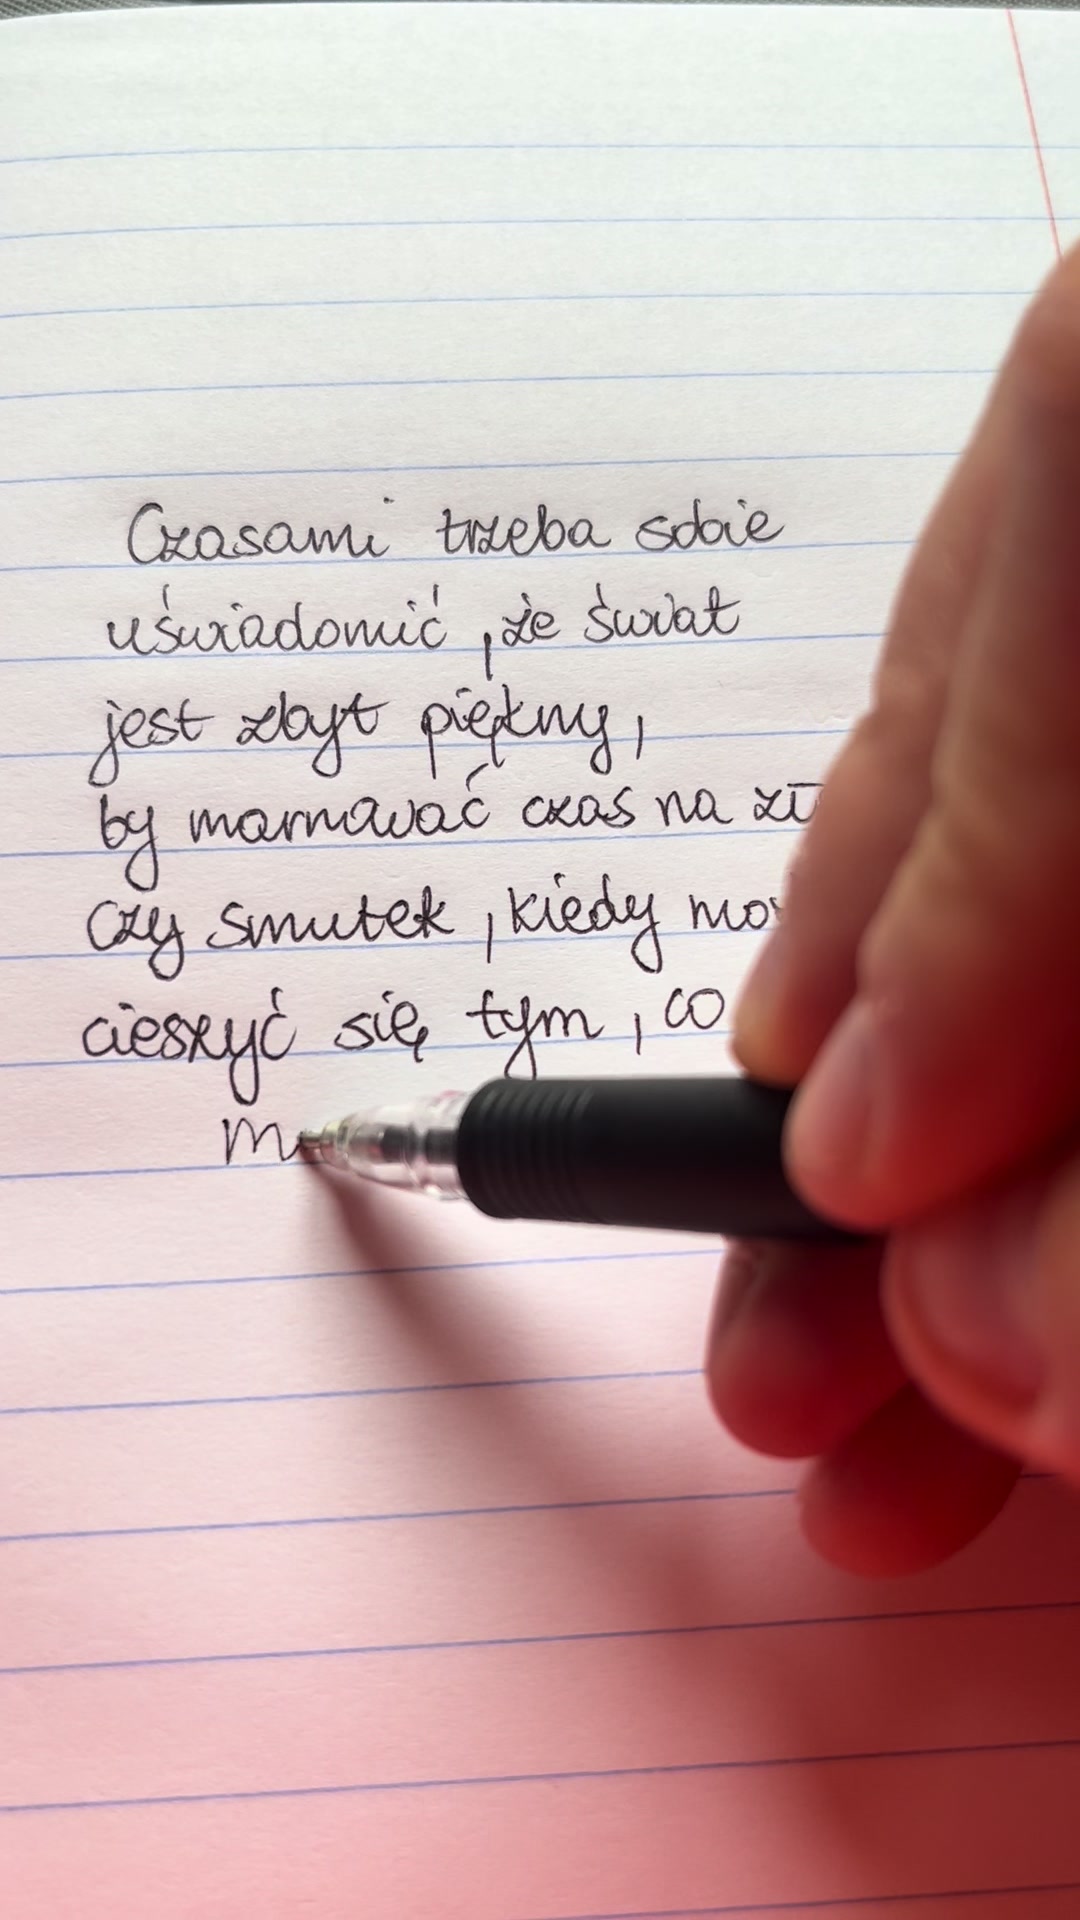 Czasami trzeba sobie
uświadomić, że świat
jest zbyt piękny,
by marnować czas na
czy smutek, kiedy
cieszyć się tym, co